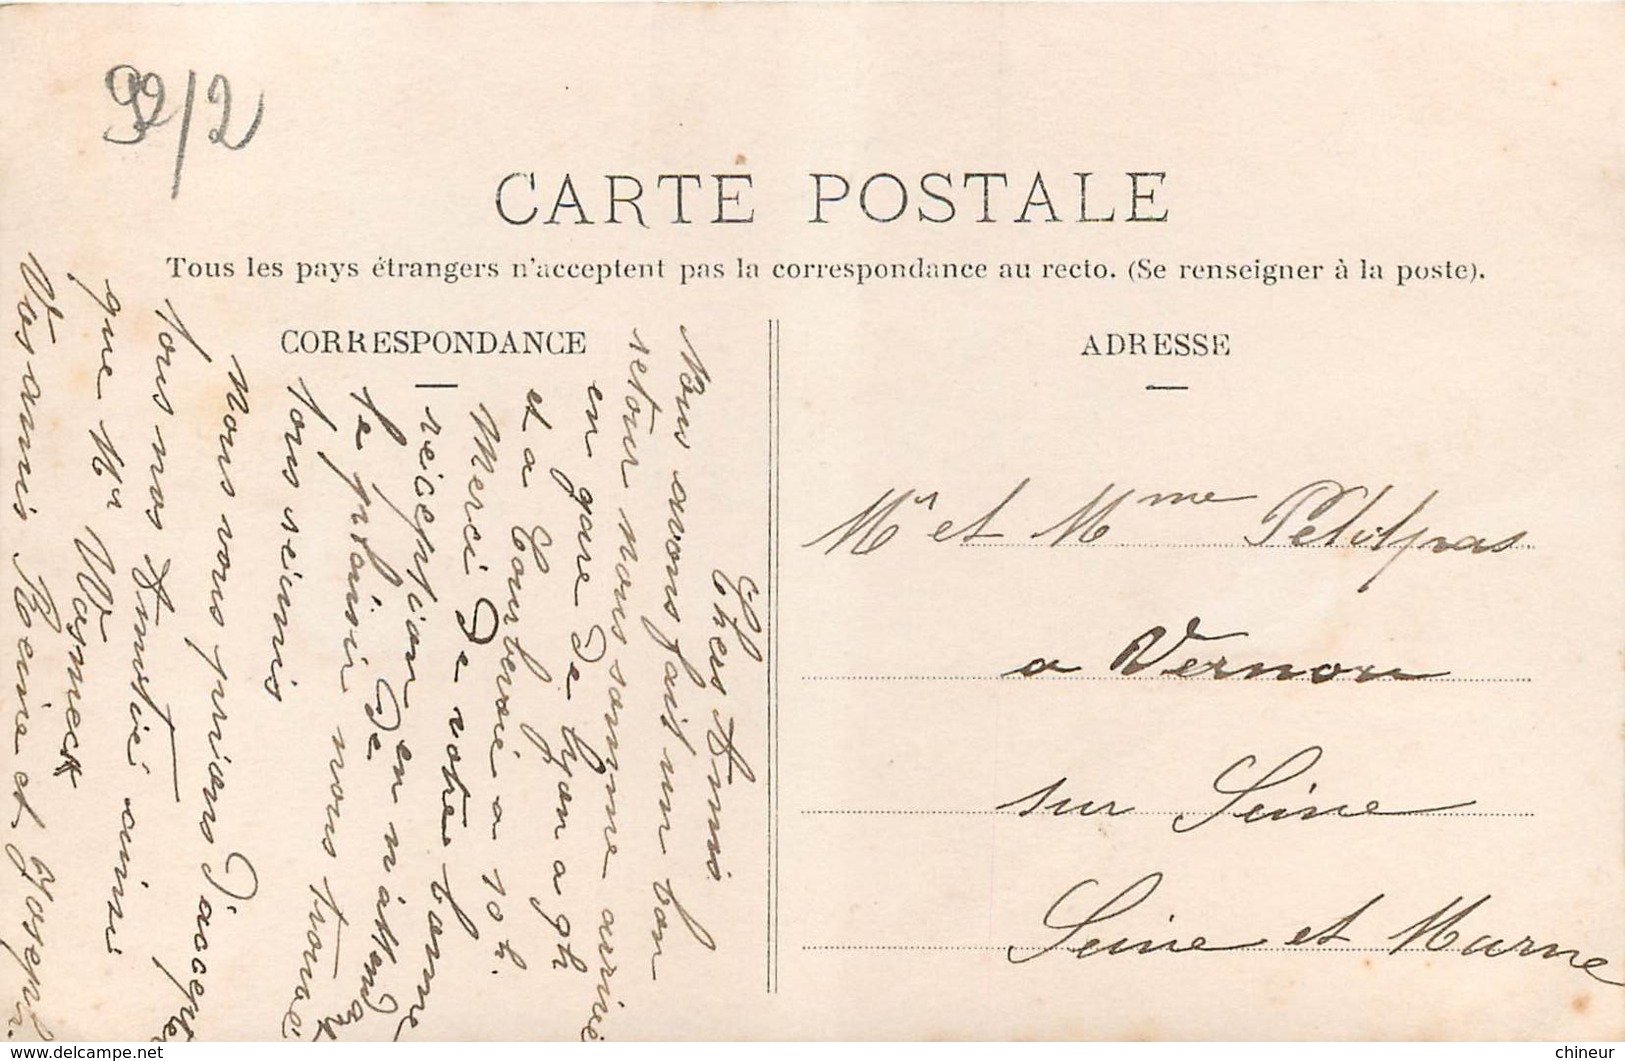 92/2
CARTE POSTALE
Tous les pays étrangers n'acceptent pas la correspondance au recto. (Se renseigner à la poste).
CORRESPONDANCE
Chers Amis
Nous avons fait un bon
retour nous somme arrivé
en gare de Lyon a 9h
et a Courbevoie a 10h.
Merci de votre bonne
réception en n'attend
le plaisir de nous trouvé
tous reunis
Nous vous prions d'accepté
tous nos Amitié ainsi
que Mr Wasmeck
Vos amis Reine et Joseph.
ADRESSE
Mr et Mme Petitpas
a Vernou
sur Seine
Seine et Marne
chineur